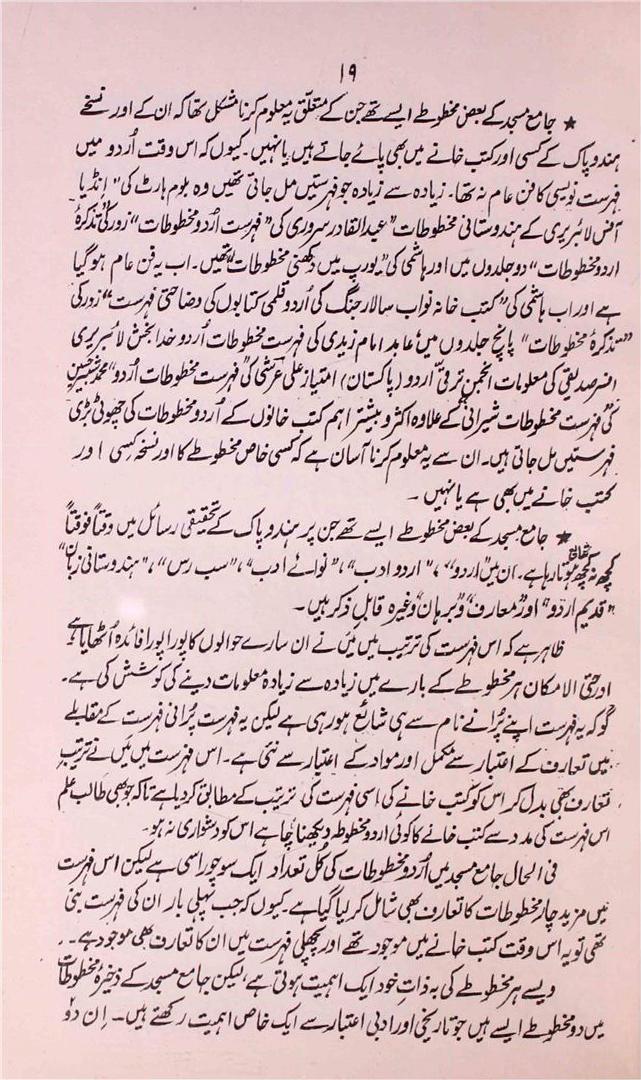 ۱۹
★ جامع مسجد کے بعض مخطوطے ایسے تھے جن کے متعلق یہ معلوم کرنا مشکل تھا کہ ان کے اور نسخے
ہند و پاک کے کسی اور کتب خانے میں بھی پائے جاتے ہیں یا نہیں۔ کیوں کہ اس وقت اُردو میں
فہرست نویسی کا فن عام نہ تھا۔ زیادہ سے زیادہ جو فہرستیں مل جاتی تھیں وہ بلوم ہارٹ کی "انڈیا
آفس لائبریری کے ہندوستانی مخطوطات" عبدالقادر سروری کی "فہرست اُردو مخطوطات" زور کی تذکرۂ
اردو مخطوطات" دو جلدوں میں اور ہاشمی کی "یورپ میں دکھنی مخطوطات" تھیں۔ اب یہ فن عام ہو گیا
ہے اور اب ہاشمی کی "کتب خانہ نواب سالار جنگ کی اُردو قلمی کتابوں کی وضاحتی فہرست" زور کی
"تذکرۂ مخطوطات" پانچ جلدوں میں، عابد امام زیدی کی فہرست مخطوطات اُردو خدا بخش لائبریری
افسر صدیقی کی معلومات انجمن ترقی اردو (پاکستان) امتیاز علی عرشی کی "فہرست مخطوطات اُردو" محمد بشیر حسین
کی "فہرست مخطوطات شیرانی" کے علاوہ اکثر و بیشتر اہم کتب خانوں کے اُردو مخطوطات کی چھوٹی بڑی
فہرستیں مل جاتی ہیں۔ ان سے یہ معلوم کرنا آسان ہے کہ کسی خاص مخطوطے کا اور نسخہ کسی اور
کتب خانے میں بھی ہے یا نہیں۔
★ جامع مسجد کے بعض مخطوطے ایسے تھے جن پر ہند و پاک کے تحقیقی رسائل میں وقتاً فوقتاً
کچھ نہ کچھ شائع ہوتا رہا ہے۔ ان میں "اردو"، "اردو ادب"، "نوائے ادب"، "سب رس"، "ہندوستانی زبان"
"قدیم اردو" اور "معارف" و "برہان" وغیرہ قابلِ ذکر ہیں۔
ظاہر ہے کہ اس فہرست کی ترتیب میں میں نے ان سارے حوالوں کا پورا پورا فائدہ اُٹھایا ہے
اور حتی الامکان ہر مخطوطے کے بارے میں زیادہ سے زیادہ معلومات دینے کی کوشش کی ہے۔
گو کہ یہ فہرست اپنے پُرانے نام سے ہی شائع ہو رہی ہے لیکن یہ فہرست پُرانی فہرست کے مقابلے
میں تعارف کے اعتبار سے مکمل اور مواد کے اعتبار سے نئی ہے۔ اس فہرست میں میں نے ترتیب
تعارف بھی بدل کر اس کو کتب خانے کی اسی فہرست کی ترتیب کے مطابق کر دیا ہے تاکہ جو بھی طالب علم
اس فہرست کی مدد سے کتب خانے کا کوئی اُردو مخطوطہ دیکھنا چاہے اس کو دشواری نہ ہو۔
فی الحال جامع مسجد میں اُردو مخطوطات کی کُل تعداد ایک سو چوراسی ہے لیکن اس فہرست
میں مزید چار مخطوطات کا تعارف بھی شامل کر لیا گیا ہے۔ کیوں کہ جب پہلی بار ان کی فہرست بنی
تھی تو یہ اس وقت کتب خانے میں موجود تھے اور پچھلی فہرست میں ان کا تعارف بھی موجود ہے۔
ویسے ہر مخطوطے کی بہ ذاتِ خود ایک اہمیت ہوتی ہے، لیکن جامع مسجد کے ذخیرۂ مخطوطات
میں دو مخطوطے ایسے ہیں جو تاریخی اور ادبی اعتبار سے ایک خاص اہمیت رکھتے ہیں۔ اِن دو